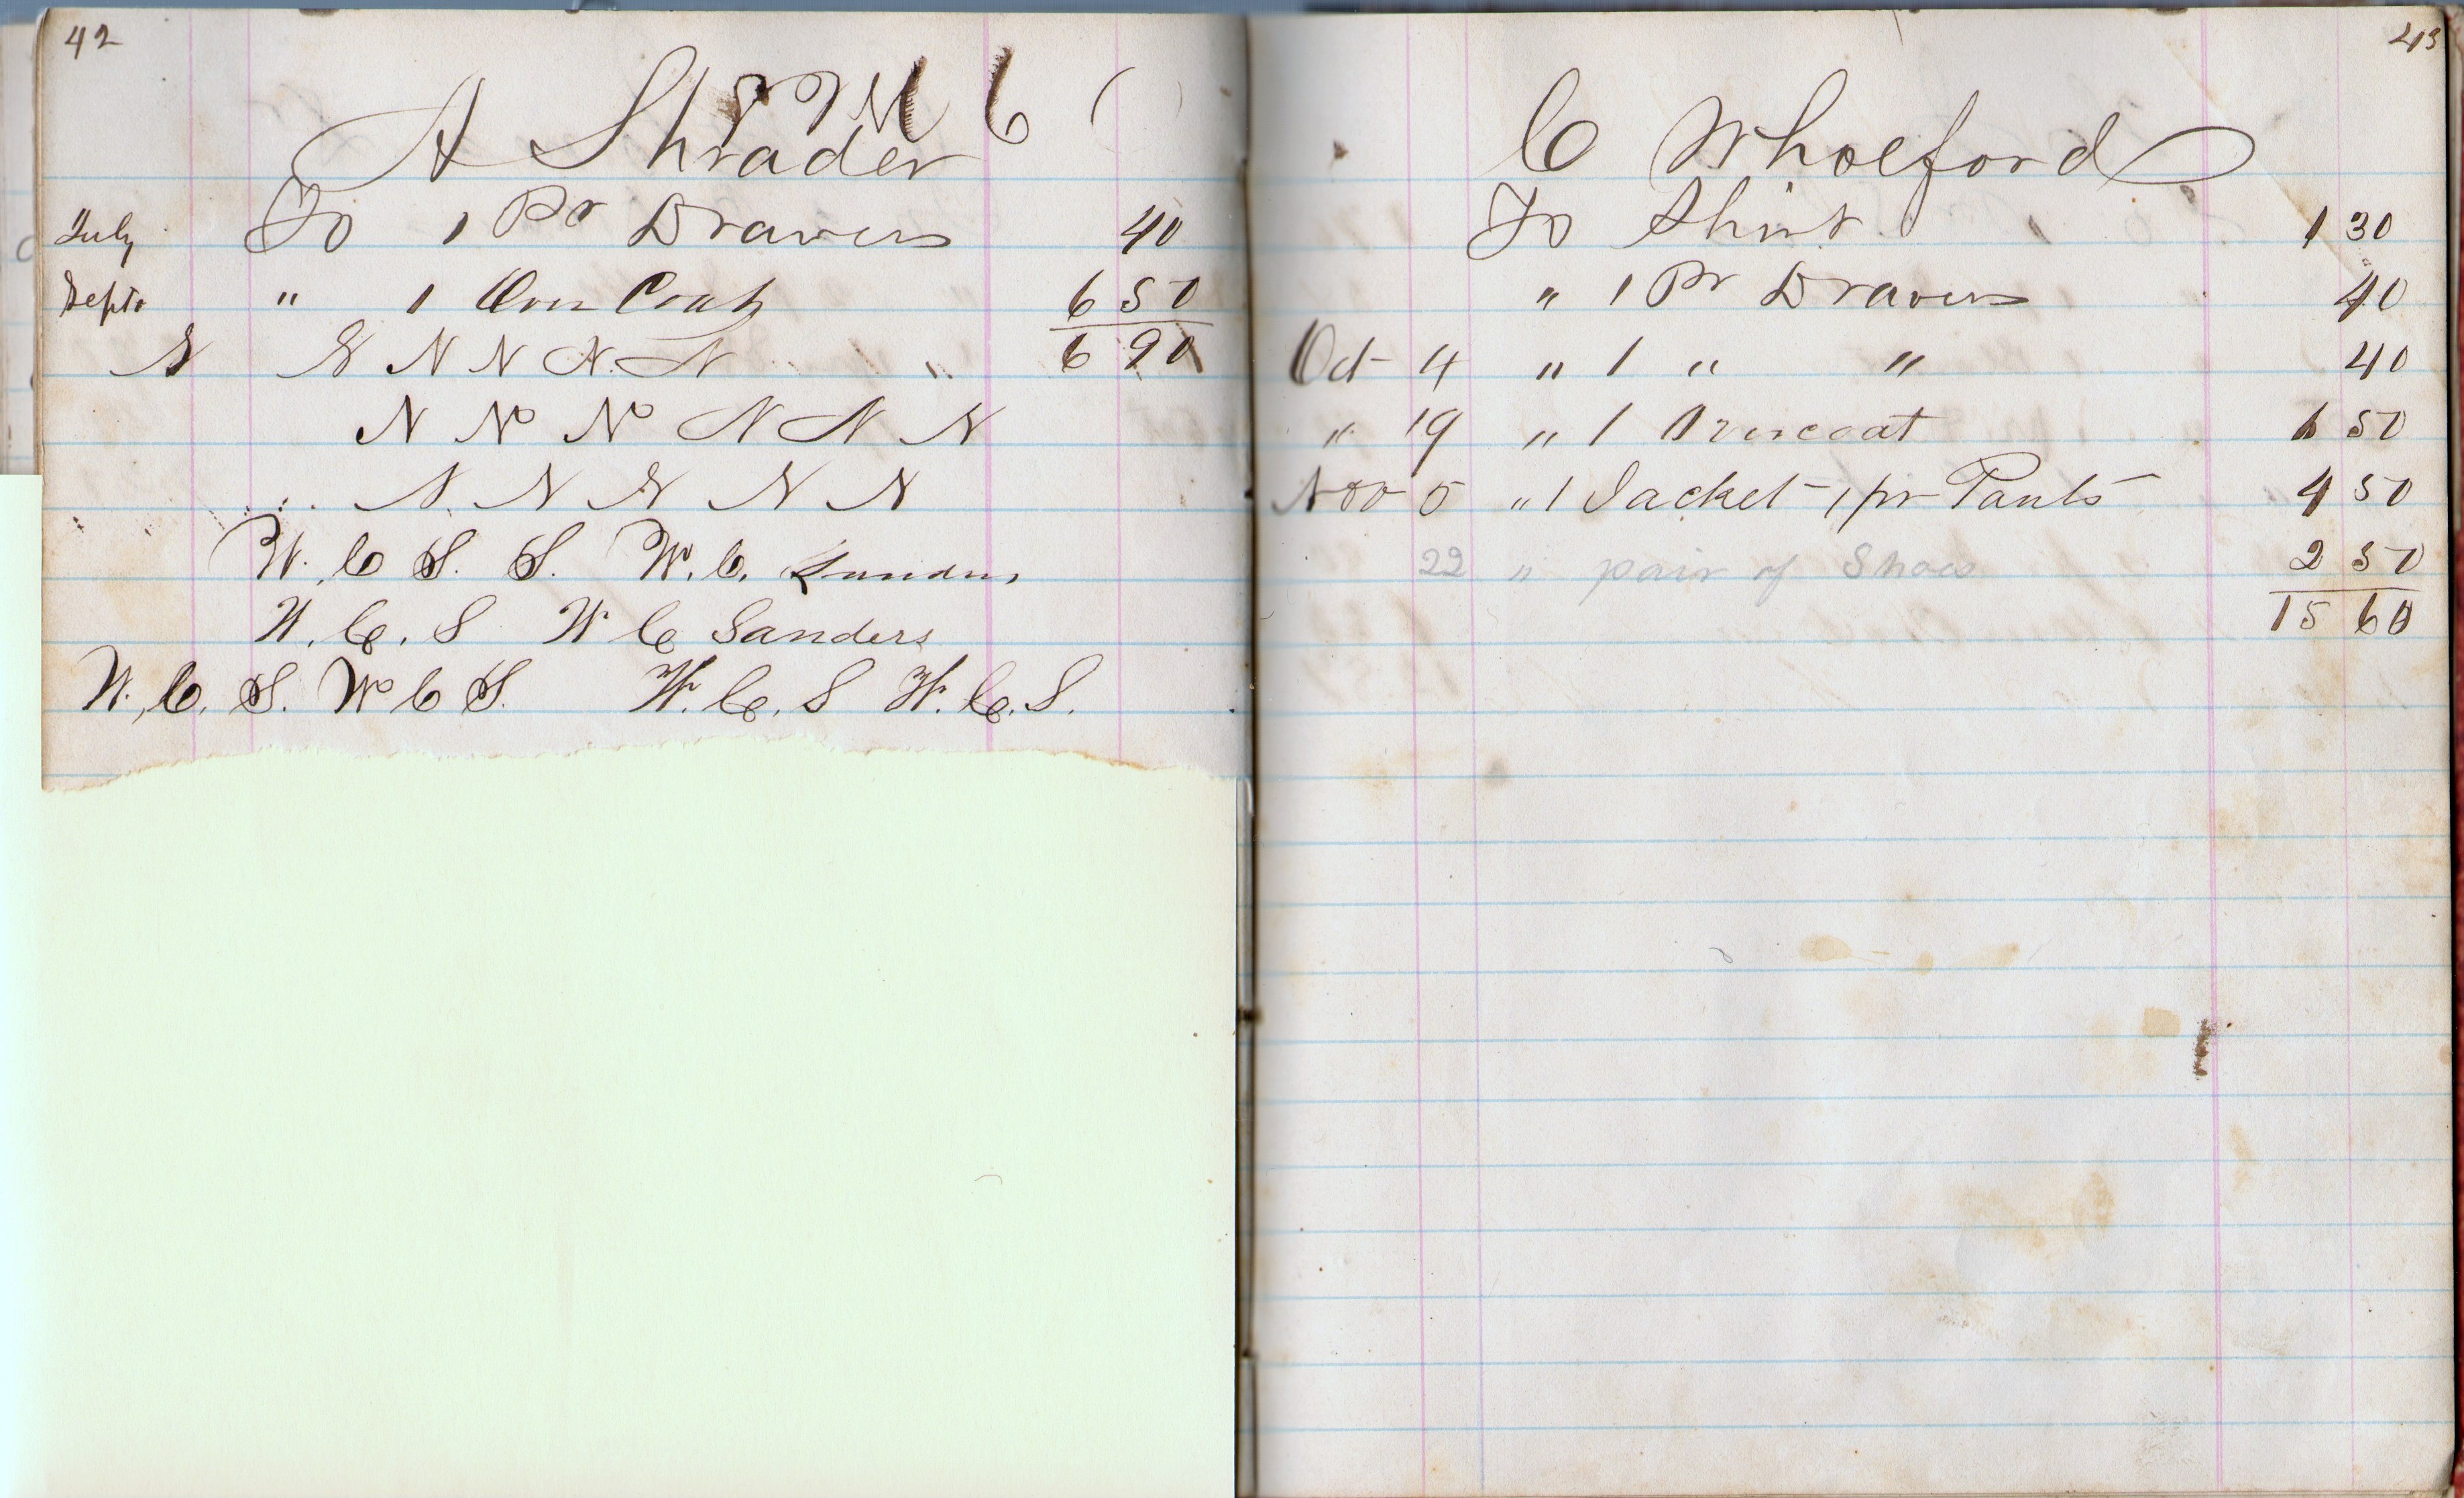 42
A Shrader
July To 1 Pr Drawers 40
Sept " 1 Over Coat 6 50
6 90
N N N N N N
N N N N N N
N N N N N
W. C S. S. W. C. Sanders
W. C. S W C Sanders
W. C. S. W C S. W. C. S W. C. S.
43
C Wholford
To Shirt 1 30
" 1 Pr Drawers 40
Oct 4 " 1 " " 40
" 19 " 1 Overcoat 6 50
Nov 5 " 1 Jacket 1 pr Pants 4 50
22 " pair of Shoes 2 50
15 60